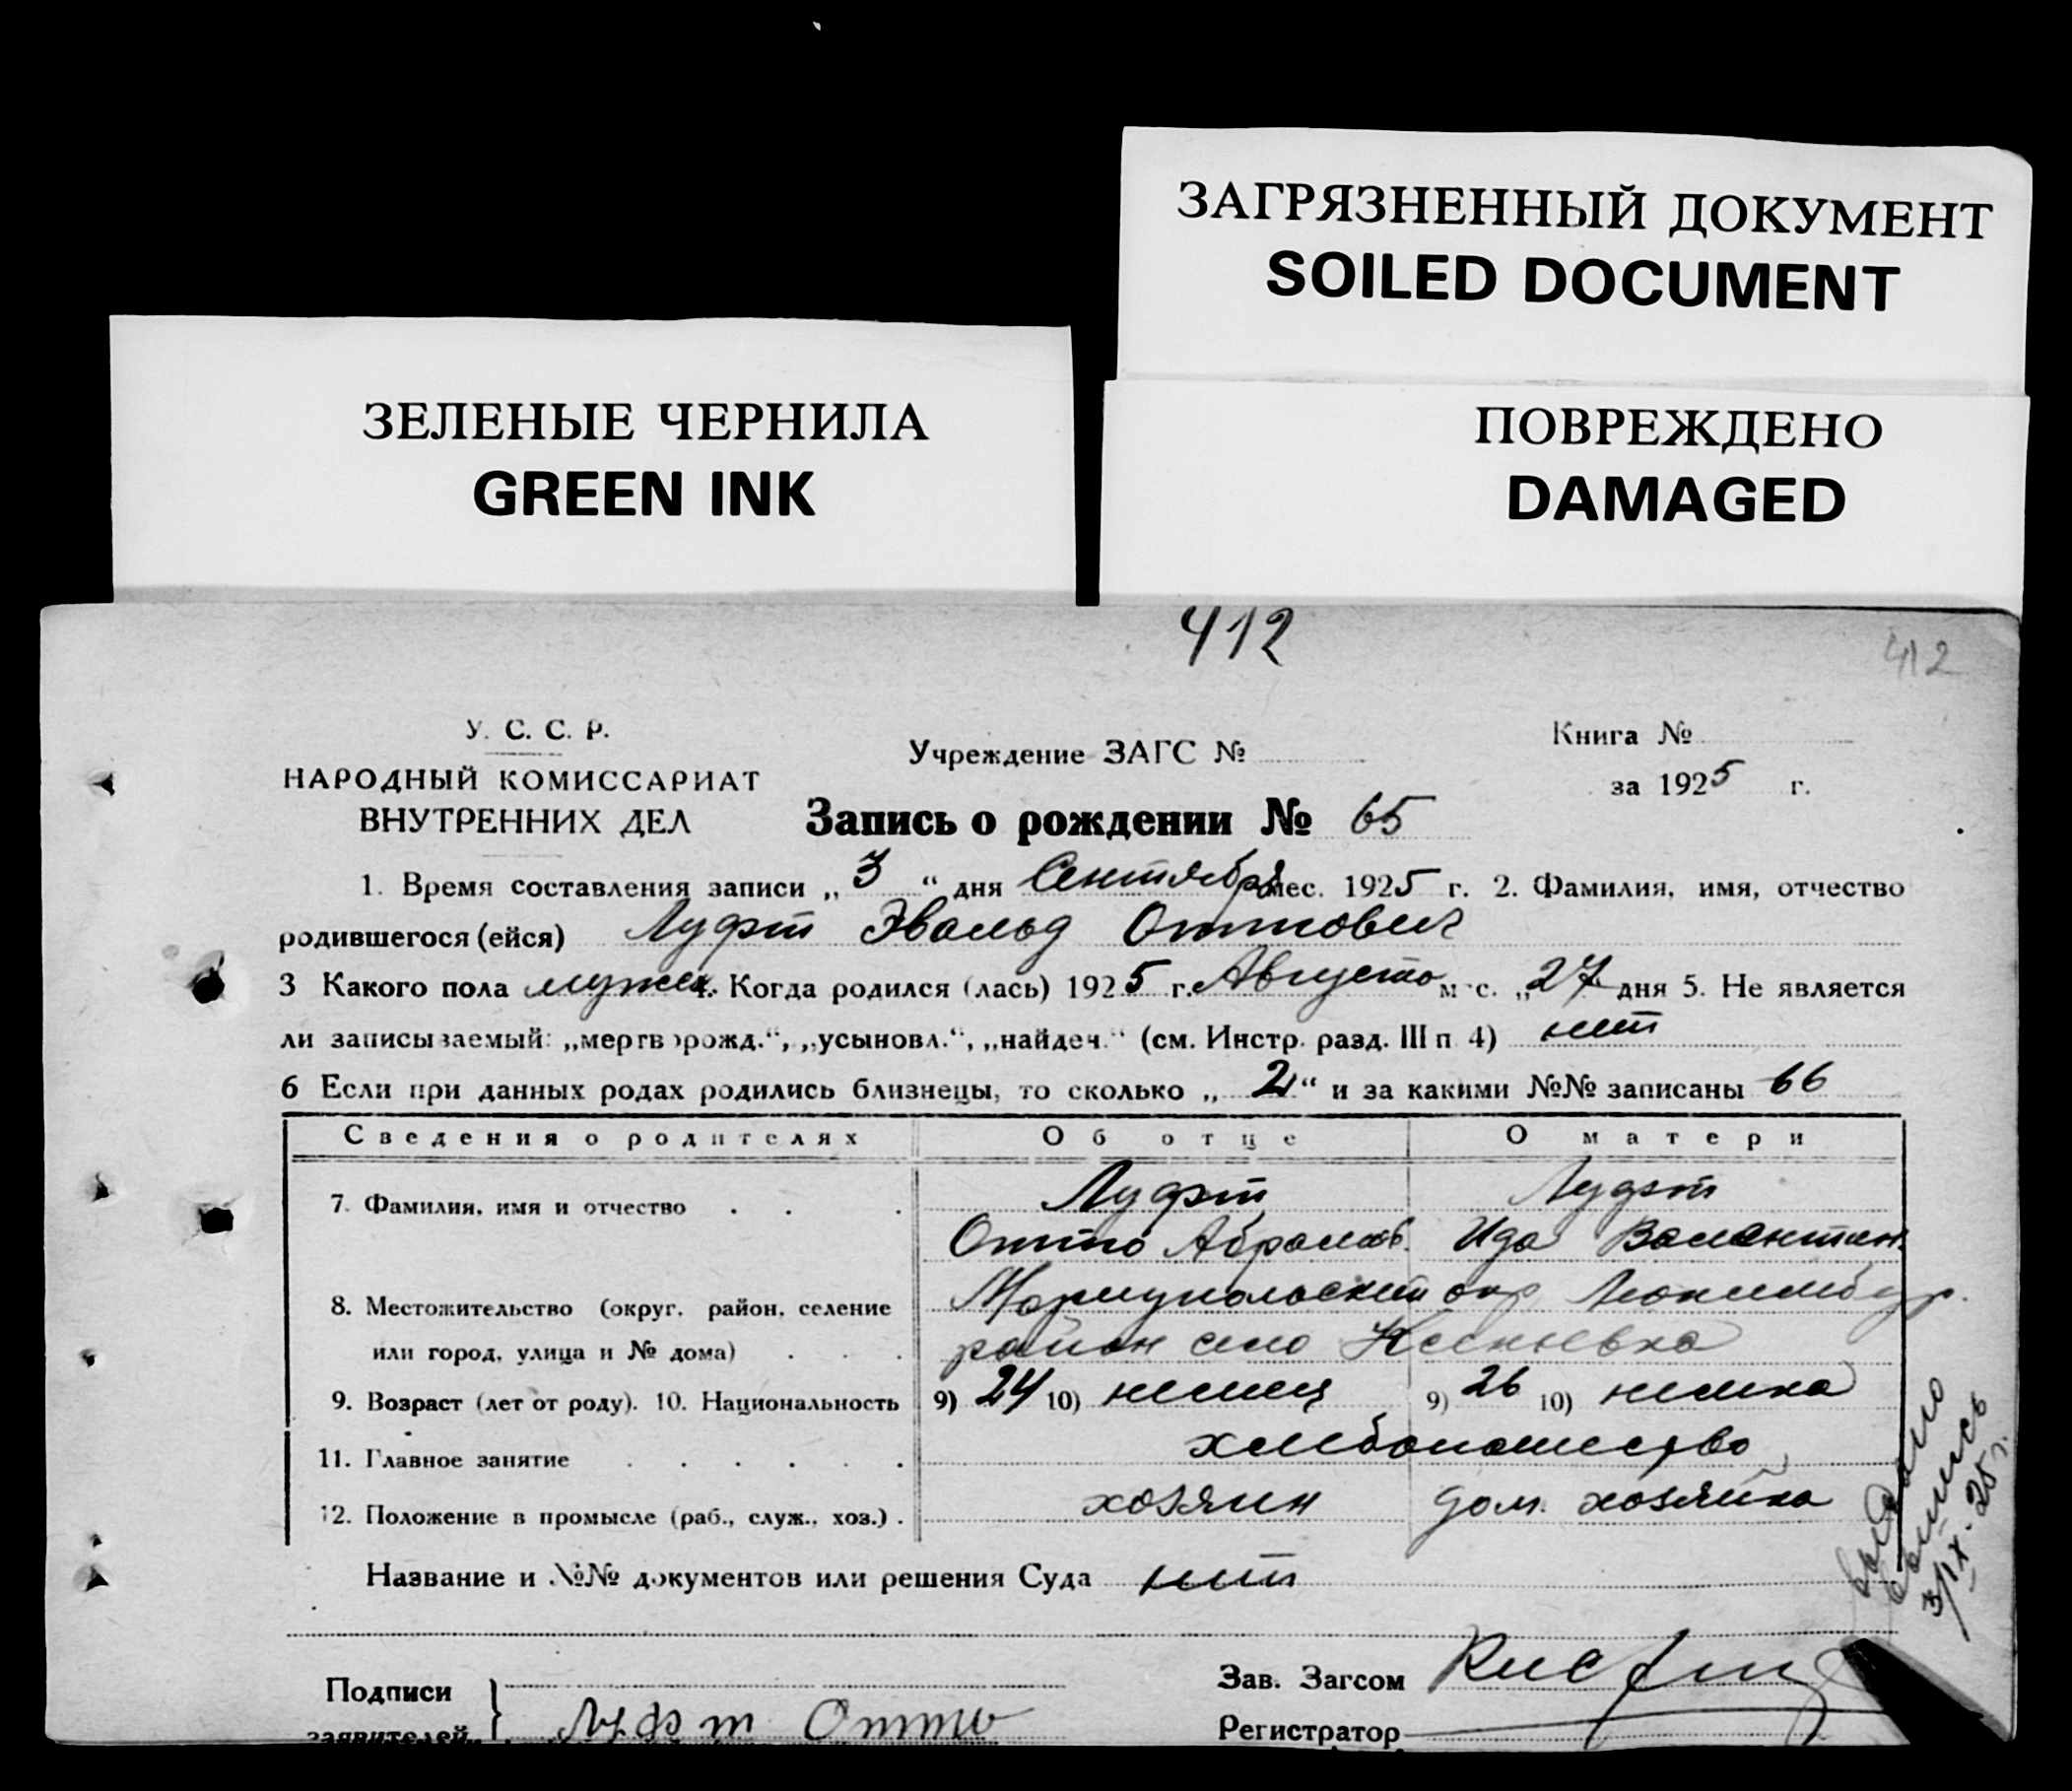 ЗАГРЯЗНЕННЫЙ ДОКУМЕНТ
SOILED DOCUMENT
ЗЕЛЕНЫЕ ЧЕРНИЛА
GREEN INK
ПОВРЕЖДЕНО
DAMAGED
412
412
У. С. С. Р.
НАРОДНЫЙ КОМИССАРИАТ
ВНУТРЕННИХ ДЕЛ
Учреждение ЗАГС №
Книга №
за 1925 г.
Запись о рождении № 65
1. Время составления записи „3“ дня Сентября мес. 1925 г. 2. Фамилия, имя, отчество
родившегося (ейся) Луфт Эвальд Оттович
3 Какого пола мужск. 4. Когда родился (лась) 1925 г. Августа м-с. „27 дня 5. Не является
ли записываемый: „мертворожд.“, „усыновл.“, „найден.“ (см. Инстр. разд. III п 4) нет
6 Если при данных родах родились близнецы, то сколько „2“ и за какими №№ записаны 66
Сведения о родителях Об отце О матери
7. Фамилия, имя и отчество Луфт Луфт
Отто Абрамов. Ида Валентин.
8. Местожительство (округ, район, селение Мариупольский окр Люксембур.
или город, улица и № дома) район село
9. Возраст (лет от роду). 10. Национальность 9) 24 10) немец 9) 26 10) немка
11. Главное занятие хлебопашество
12. Положение в промысле (раб., служ., хоз.) . хозяин дом. хозяйка
Название и №№ документов или решения Суда нет
3/IX-25 г.
Подписи
заявителей Луфт Отто
Зав. Загсом
Регистратор